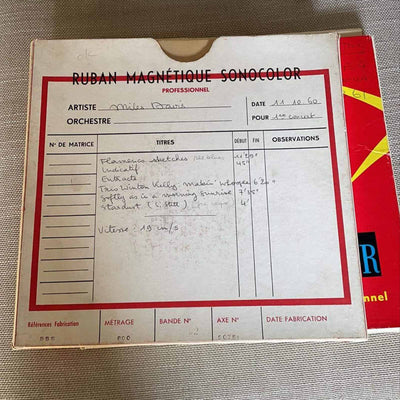 ok
RUBAN MAGNÉTIQUE SONOCOLOR
PROFESSIONNEL
ARTISTE Miles Davis
DATE 11.10.60
ORCHESTRE
POUR 1er concert
N° DE MATRICE TITRES DÉBUT FIN OBSERVATIONS
Flamenco sketches
Indicatif 45"
Entracte
Trio Winton Kelly. Makin' whoopee 6'20
Softly as in a morning sunrise 7'
Stardust (S. Stitt) 4'
Vitesse : 19 cm/s
Références Fabrication MÉTRAGE BANDE N° AXE N° DATE FABRICATION
61
R
nnel